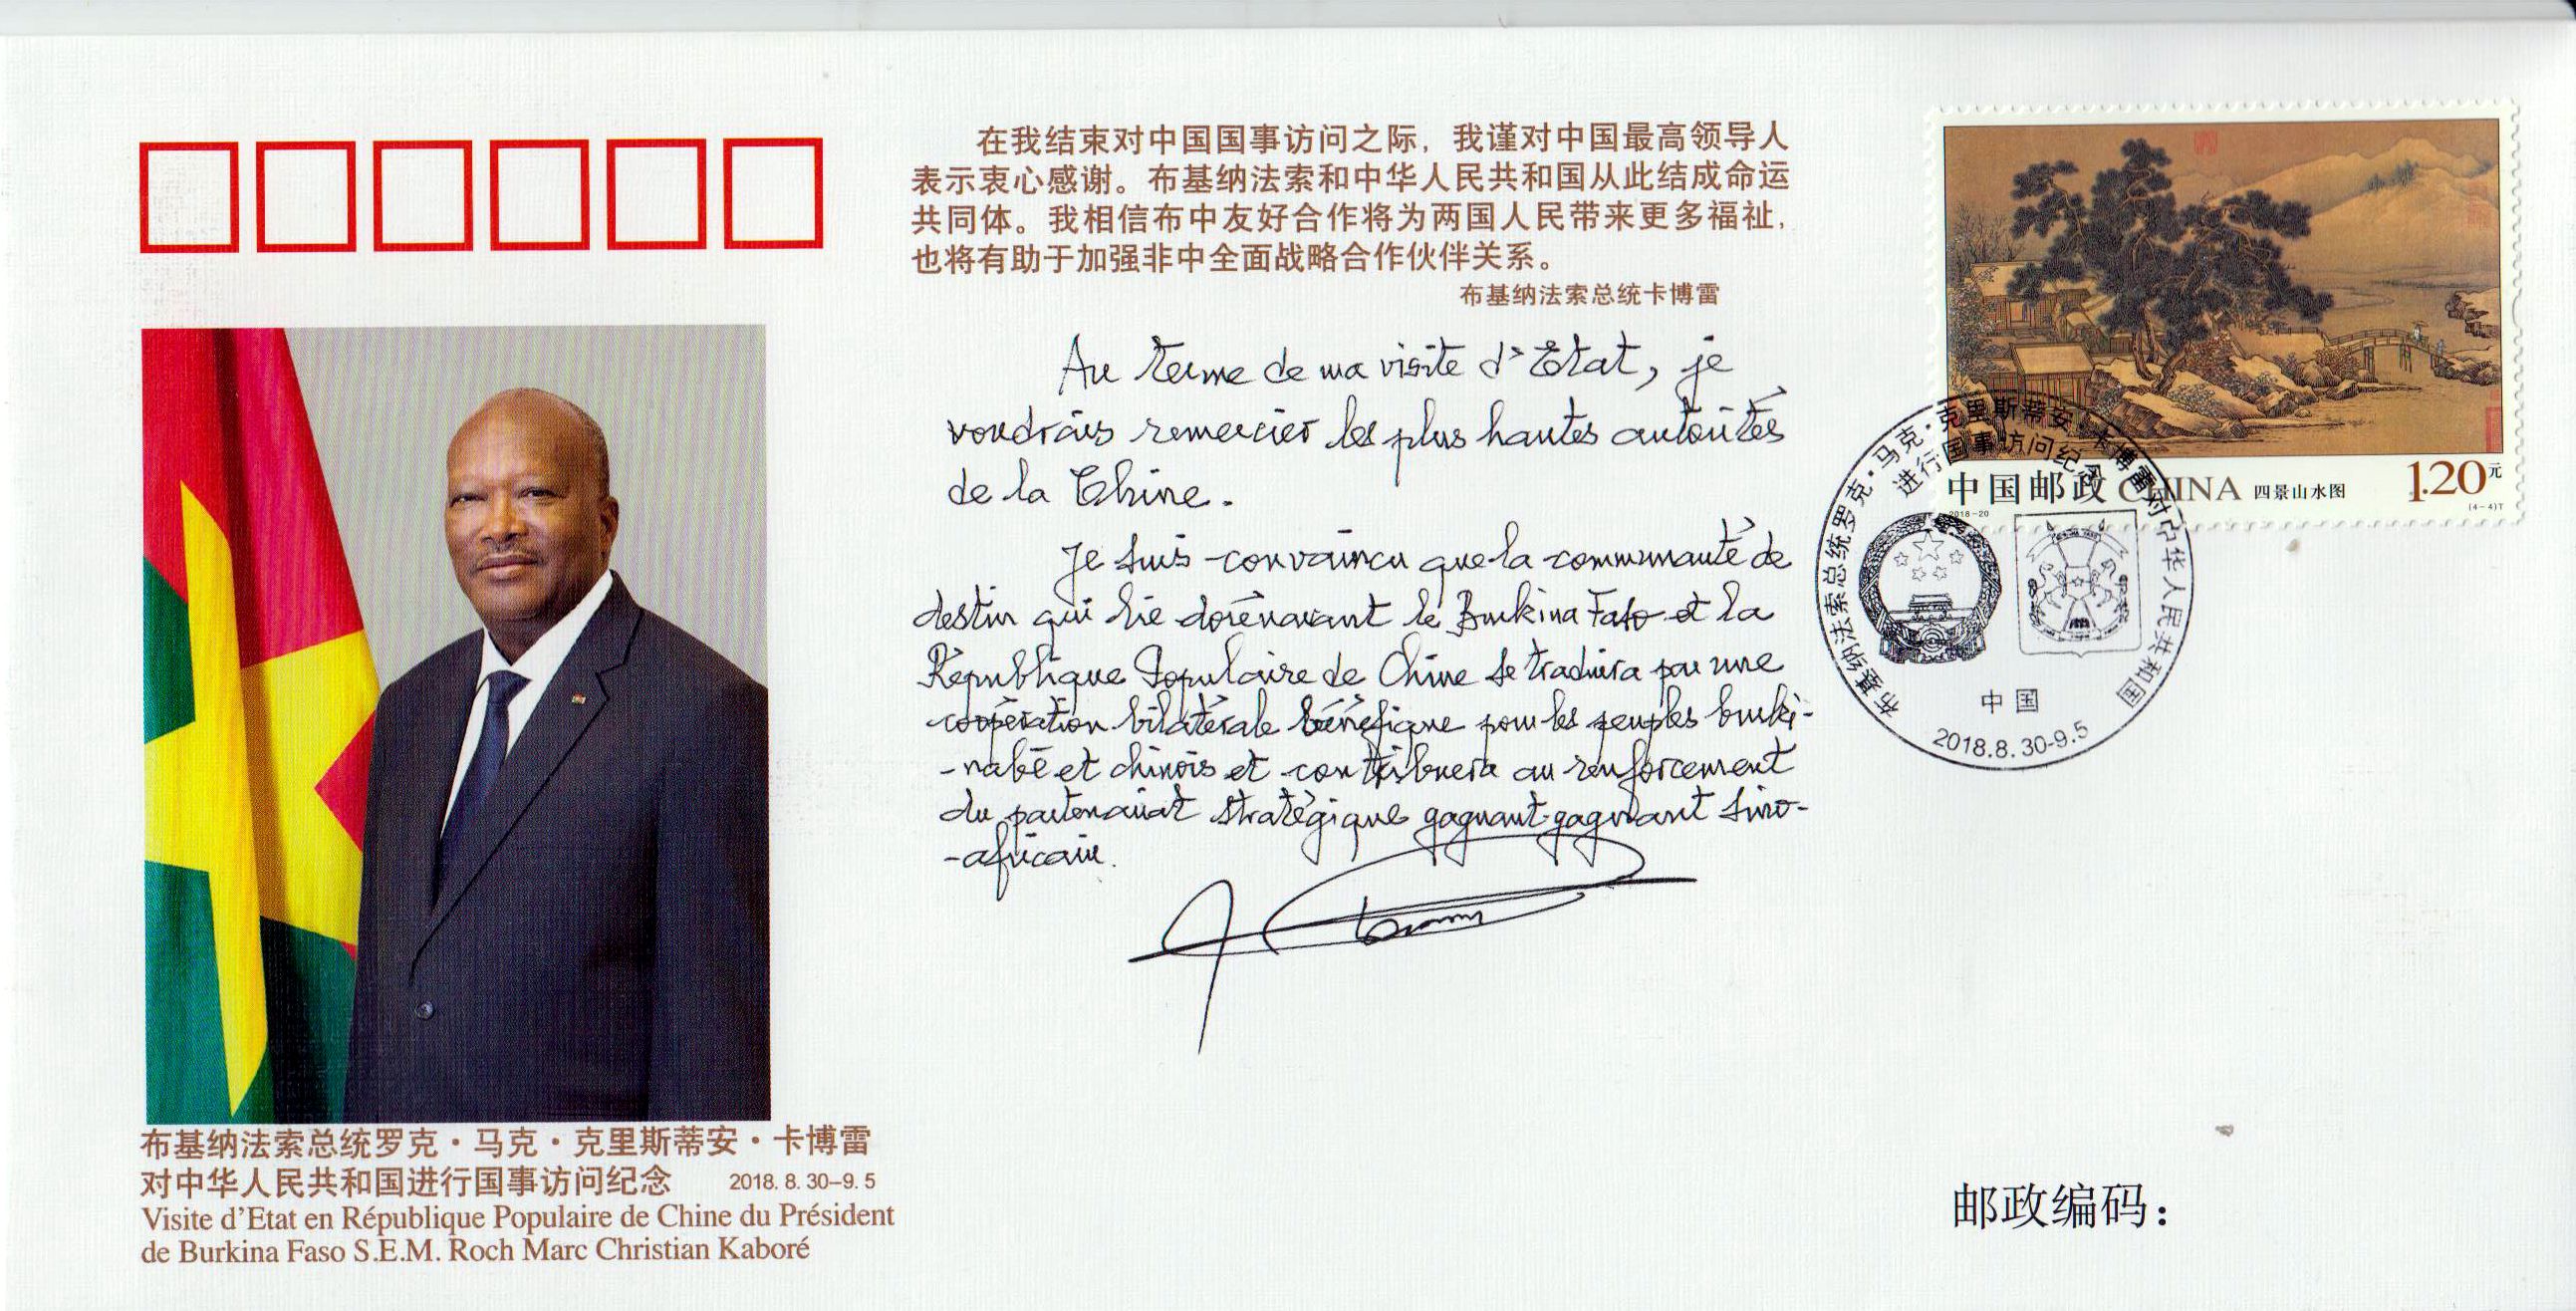 在我结束对中国国事访问之际，我谨对中国最高领导人
表示衷心感谢。布基纳法索和中华人民共和国从此结成命运
共同体。我相信布中友好合作将为两国人民带来更多福祉，
也将有助于加强非中全面战略合作伙伴关系。
布基纳法索总统卡博雷
Au terme de ma visite d'Etat, je
voudrais remercier les plus hautes autorités
de la Chine.
Je suis convaincu que la communauté de
destin qui lie dorénavant le Burkina Faso et la
République Populaire de Chine se traduira par une
coopération bilatérale bénéfique pour les peuples burki-
-nabé et chinois et contribuera au renforcement
du partenariat stratégique gagnant-gagnant sino-
-africain.
布基纳法索总统罗克·马克·克里斯蒂安·卡博雷
对中华人民共和国进行国事访问纪念 2018.8.30-9.5
Visite d'Etat en République Populaire de Chine du Président
de Burkina Faso S.E.M. Roch Marc Christian Kaboré
中国邮政 CHINA 四景山水图 1.20元
2018-20 (4-4)T
布基纳法索总统罗克·马克·克里斯蒂安·卡博雷对中华人民共和国
进行国事访问纪念
中国
2018.8.30-9.5
邮政编码：